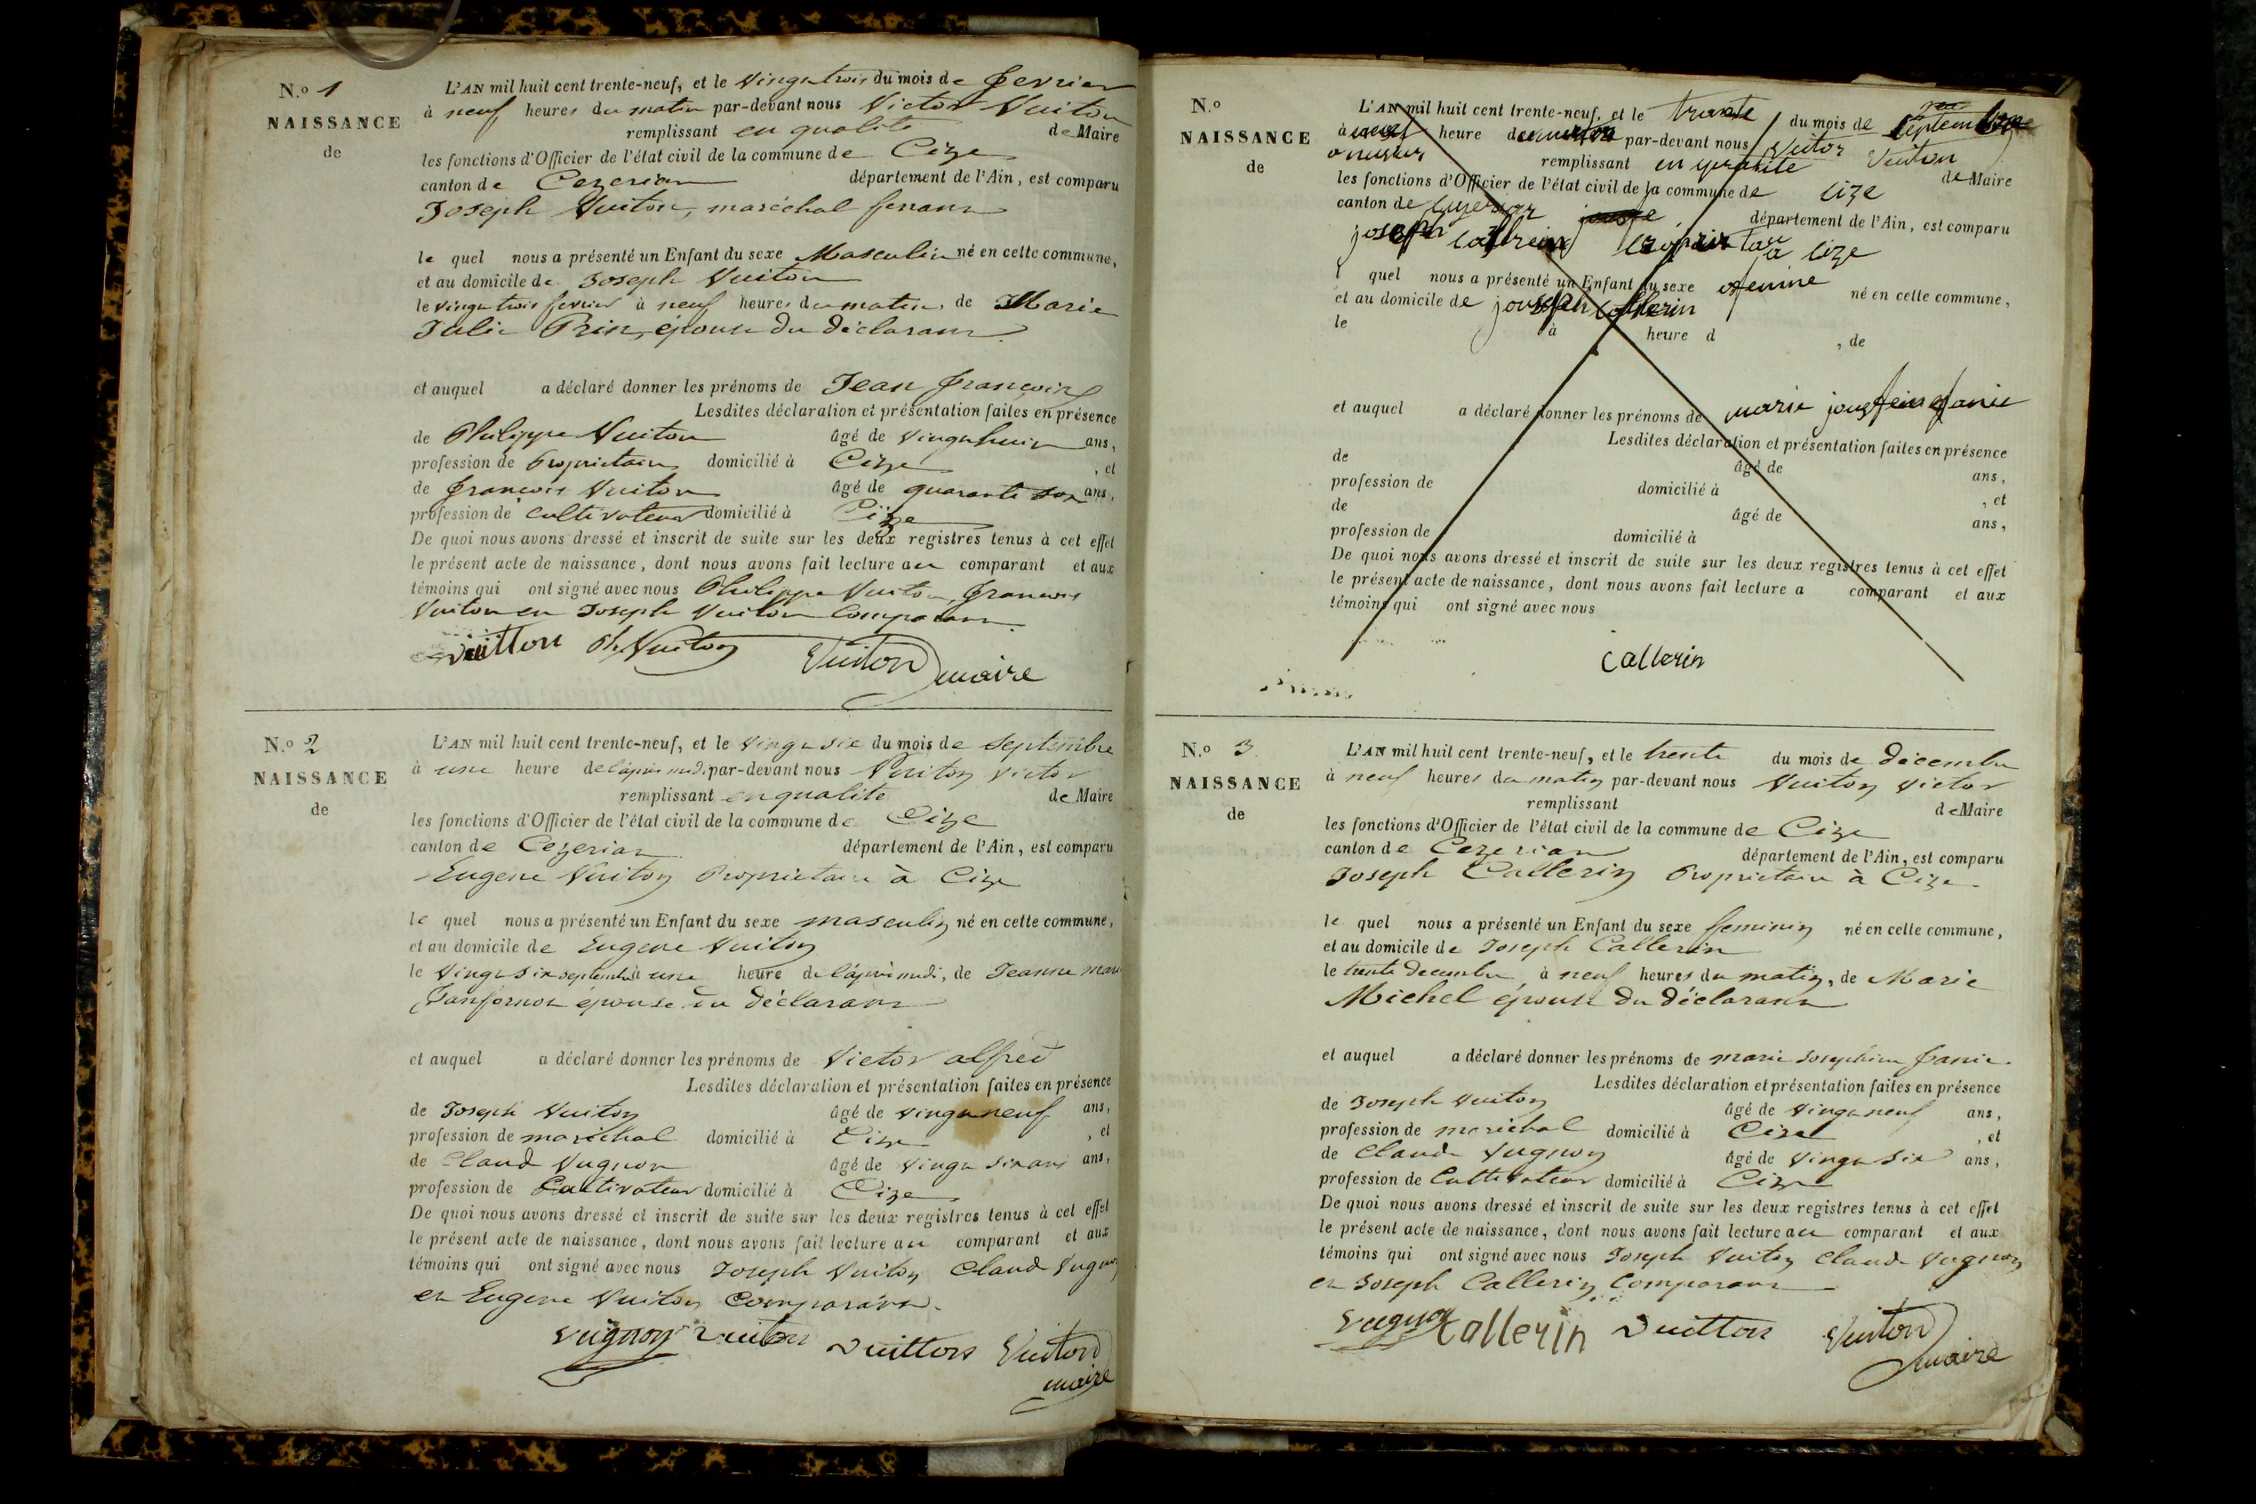 N.o 1
NAISSANCE
de
L'AN mil huit cent trente-neuf, et le vingt trois du mois de fevrier
à neuf heures du matin par-devant nous Victor Vuiton
remplissant en qualite de Maire
les fonctions d'Officier de l'état civil de la commune de Cize
canton de Cezerian département de l'Ain, est comparu
Joseph Vuiton, maréchal ferrant
le quel nous a présenté un Enfant du sexe Masculin né en cette commune,
et au domicile de Joseph Vuiton
le vingt trois fevrier à neuf heures du matin, de Marie
Julie Prin, épouse du déclarant
et auquel a déclaré donner les prénoms de Jean françois
Lesdites déclaration et présentation faites en présence
de Philippe Vuiton âgé de vingt huit ans,
profession de Proprietaire domicilié à Cize, et
de françois Vuiton âgé de quarante ans,
profession de cultivateur domicilié à Cize
De quoi nous avons dressé et inscrit de suite sur les deux registres tenus à cet effet
le présent acte de naissance, dont nous avons fait lecture au comparant et aux
témoins qui ont signé avec nous Philippe Vuiton, francois
Vuiton et Joseph Vuiton Comparant
vuitton Ph Vuiton Vuiton maire
N.o 2
NAISSANCE
de
L'AN mil huit cent trente-neuf, et le vingt six du mois de septembre
à une heure de l'après midi par-devant nous Vuiton victor
remplissant en qualite de Maire
les fonctions d'Officier de l'état civil de la commune de Cize
canton de Cezerian département de l'Ain, est comparu
Eugene Vuiton Proprietaire à Cize
le quel nous a présenté un Enfant du sexe masculin né en cette commune,
et au domicile de Eugene Vuiton
le vingt six septembre à une heure de l'après midi, de Jeanne marie
épouse du déclarant
et auquel a déclaré donner les prénoms de Victor alfred
Lesdites déclaration et présentation faites en présence
de Joseph Vuiton âgé de vingt neuf ans,
profession de maréchal domicilié à Cize, et
de Claud Vugnon âgé de vingt six ans ans,
profession de Cultivateur domicilié à Cize
De quoi nous avons dressé et inscrit de suite sur les deux registres tenus à cet effet
le présent acte de naissance, dont nous avons fait lecture au comparant et aux
témoins qui ont signé avec nous Joseph Vuiton Claud Vugnon
et Eugene Vuiton Comparant
vugnon vuiton vuitton Vuiton
maire
N.o
NAISSANCE
de
L'AN mil huit cent trente-neuf, et le trante du mois de septembre
à heure d par-devant nous victor Vuiton
remplissant en qualite de Maire
les fonctions d'Officier de l'état civil de la commune de cize
canton de département de l'Ain, est comparu
joseph callerin à cize
l quel nous a présenté un Enfant du sexe né en cette commune,
et au domicile de callerin
le à heure d , de
et auquel a déclaré donner les prénoms de marie
Lesdites déclaration et présentation faites en présence
de âgé de ans,
profession de domicilié à , et
de âgé de ans,
profession de domicilié à
De quoi nous avons dressé et inscrit de suite sur les deux registres tenus à cet effet
le présent acte de naissance, dont nous avons fait lecture a comparant et aux
témoins qui ont signé avec nous
callerin
N.o 3
NAISSANCE
de
L'AN mil huit cent trente-neuf, et le trente du mois de décembre
à neuf heures du matin par-devant nous Vuiton victor
remplissant de Maire
les fonctions d'Officier de l'état civil de la commune de Cize
canton de Cezerian département de l'Ain, est comparu
Joseph Callerin Proprietaire à Cize
le quel nous a présenté un Enfant du sexe feminin né en cette commune,
et au domicile de Joseph Callerin
le trente decembre à neuf heures du matin, de Marie
Michel épouse du déclarant
et auquel a déclaré donner les prénoms de marie Josephine fanie
Lesdites déclaration et présentation faites en présence
de Joseph Vuiton âgé de vingt neuf ans,
profession de maréchal domicilié à Cize, et
de Claude Vugnon âgé de vingt six ans,
profession de Cultivateur domicilié à Cize
De quoi nous avons dressé et inscrit de suite sur les deux registres tenus à cet effet
le présent acte de naissance, dont nous avons fait lecture au comparant et aux
témoins qui ont signé avec nous Joseph Vuiton Claude Vugnon
et Joseph Callerin Comparant
vugnon Callerin vuitton Vuiton
maire